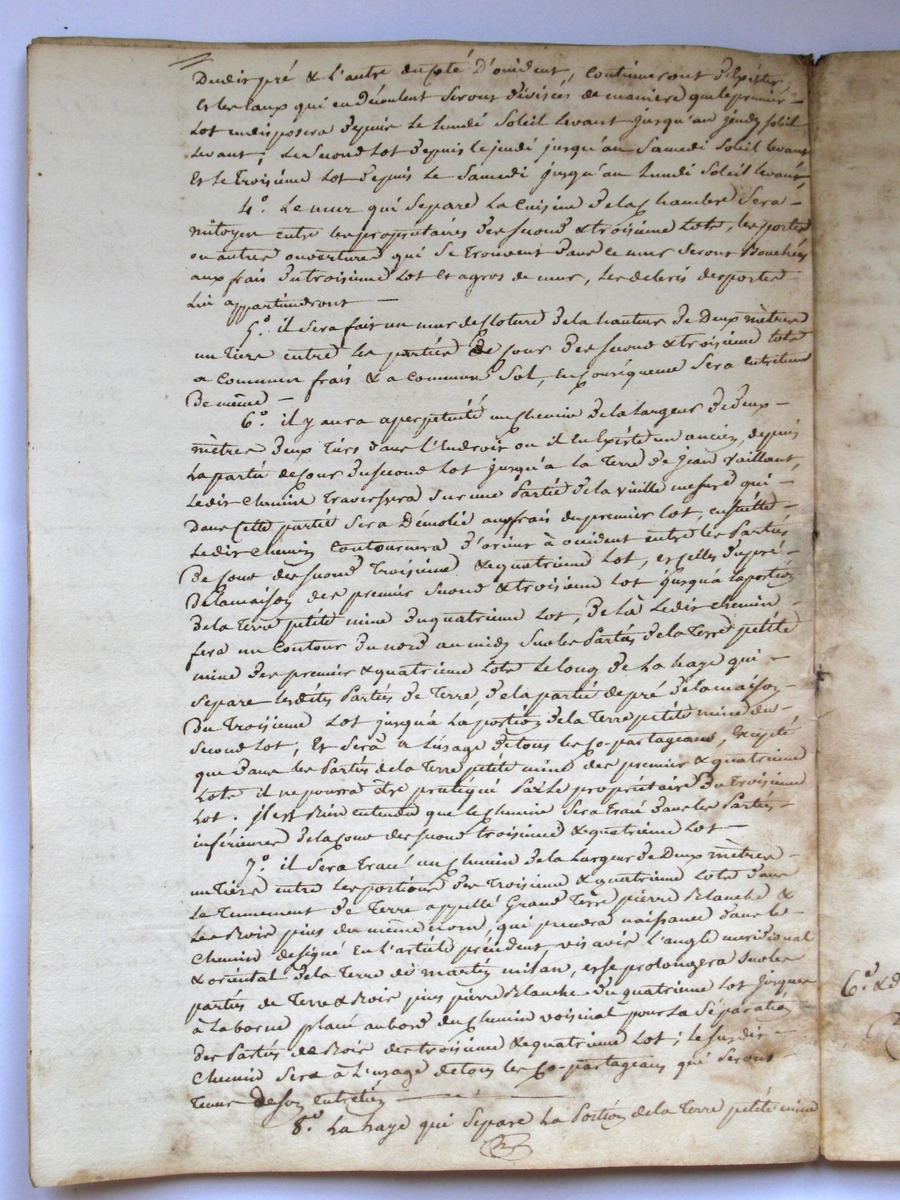 Dudit pré & l'autre du côté d'occident, continueront d'exister
et les eaux qui en découlent seront divisées de maniere que le premier
lot en disposera depuis le lundi soleil levant jusqu'au jeudy soleil
levant; le second lot depuis le jeudi jusqu'au samedi soleil levant
Et le troisième lot depuis le samedi jusqu'au lundi soleil levant,
4.° Le mur qui separe la cuisine de la chambre sera
mitoyen entre les propriétaires des second & troisième lots, les portes
ou autres ouvertures qui se trouvent dans ce mur seront bouchées
aux frais du troisième lot et a gros de mur, les debris des portes
lui appartiendront —
5.° il sera fait un mur de cloture de la hauteur de deux mètres
un tiers entre les parties de cour des second & troisième lots
a commun frais & a commun sol, en conséquence sera entretenu
de même —
6.° il y aura a perpétuité un chemin de la largeur de deux
mètres deux tiers dans l'endroit ou il en existe un ancien, depuis
la partie de cour du second lot jusqu'à la terre de jean vaillant,
ledit chemin traversera sur une partie de la vieille masure qui
dans cette partie sera démolie aux frais du premier lot, ensuite
ledit chemin contournera d'orient à occident entre les parties
de cour des second troisième & quatrième lot, et celles du pré
de la maison des premier second & troisième lot jusqu'à la portion
de la terre petite mine du quatrième lot, de là ledit chemin
fera un contour du nord au midy sur les parties de la terre petite
mine des premier & quatrième lots le long de la haye qui
separe lesdites parties de terre, de la partie de pré de la maison
du troisième lot jusqu'à la portion de la terre petite mine du
second lot; Et sera a l'usage de tous les co-partageans, excepté
que dans les parties de la terre petite mine des premier & quatrième
lots il ne pourra être pratiqué par le propriétaire du troisième
lot. il est bien entendu que le chemin sera tracé dans les parties
inférieures de la cour des second troisième & quatrième lot —
7.° il sera tracé un chemin de la largeur de deux mètres
un tiers entre les portions des troisième & quatrième lots dans
le tennement de terre appellé Grand terre pierre blanche &
les bois pins du même nom, qui prendra naissance dans le
chemin désigné en l'article précédent vis avis l'angle méridional
& oriental de la terre de martin milan, et se prolongera sur les
parties de terre & bois pins pierre blanche du quatrième lot jusques
à la borne placée au bord du chemin voisinal pour la séparation
des parties de bois des troisième & quatrième lot; le susdit
chemin sera à l'usage de tous les co-partageans qui seront
tenus de son entretien —
8.° La haye qui separe la portion de la terre petite mine
6.° & d